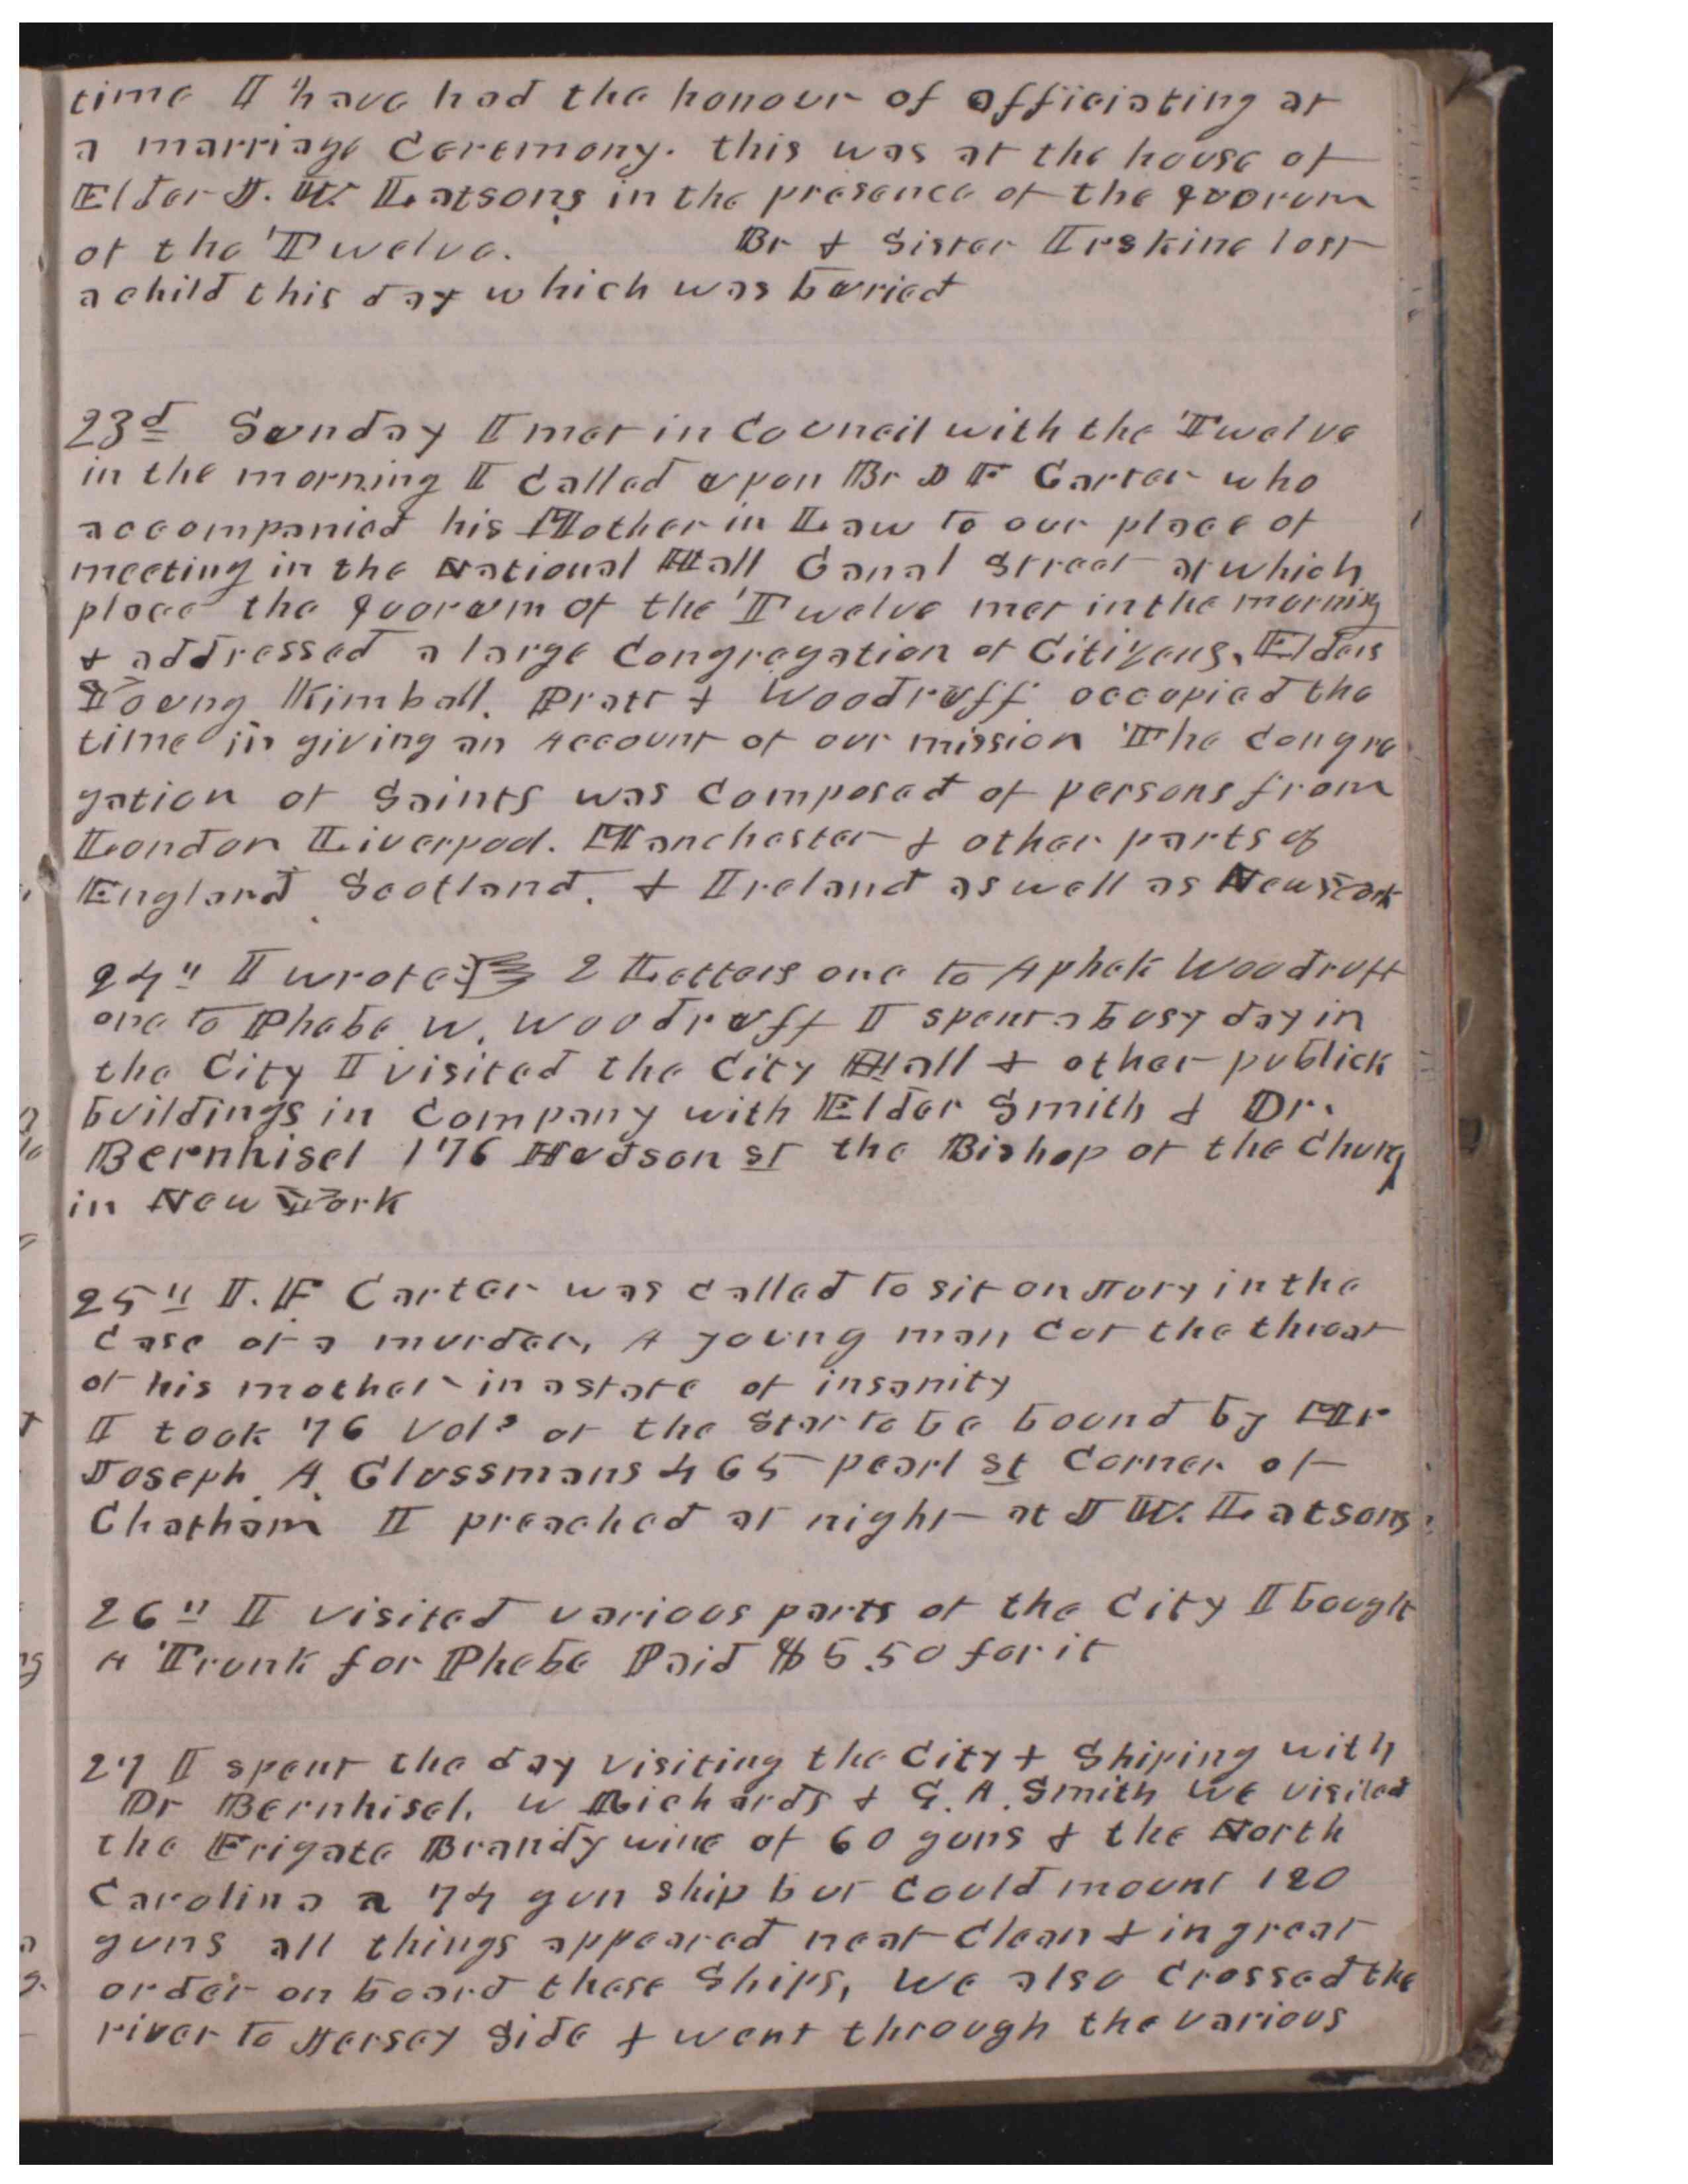 time I have had the honour of officiating at
a marriage Ceremony. this was at the house of
Elder J. W. Latsons in the presence of the quorum
of the Twelve. Br & Sister Erskine lost
a child this day which was buried
23d Sunday I met in Council with the Twelve
in the morning I Called upon Br I F Carter who
accompanied his Mother in Law to our place of
meeting in the National Hall Canal Street at which
place the quorum of the Twelve met in the morning
& addressed a large Congregation of Citizens, Elders
Young Kimball. Pratt & Woodruff occupied the
time in giving an Account of our mission The Congre
gation of Saints was Composed of persons from
London Liverpool. Manchester & other parts of
England Scotland. & Ireland as well as New York
24" I wrote 2 Letters one to Aphek Woodruff
one to Phebe W. Woodruff I spent a busy day in
the City I visited the City Hall & other publick
buildings in Company with Elder Smith & Dr.
Bernhisel 176 Hudson st the Bishop of the Churc
in New York
25" I. F Carter was Called to sit on Jury in the
Case of a murder, A young man Cut the throat
of his mother in a state of insanity
I took 76 Vols of the Star to be bound by Mr
Joseph A. Glossmans 465 pearl st Corner of
Chatham I preached at night at J W. Latsons
26" I visited various parts of the City I bought
A Trunk for Phebe Paid $5.50 for it
27 I spent the day visiting the City & Shiping with
Dr Bernhisel, W Richards & G. A. Smith We visited
the Frigate Brandy wine of 60 guns & the North
Carolina a 74 gun ship but Could mount 120
guns all things appeared neat Clean & in great
order on board these Ships, We also Crossed the
river to Jersey Side & went through the various